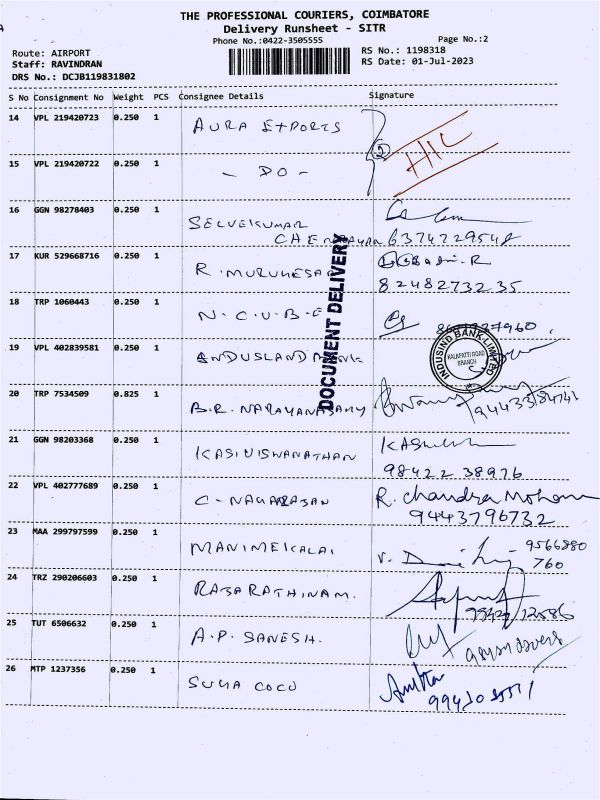 THE PROFESSIONAL COURIERS, COIMBATORE
Delivery Runsheet - SITR
Phone No.:0422-3505555
Page No.:2
Route: AIRPORT
Staff: RAVINDRAN
DRS No.: DCJB119831802
RS No.: 1198318
RS Date: 01-Jul-2023
S No Consignment No Weight PCS Consignee Details Signature
14 VPL 219420723 0.250 1 AURA EXPORTS
15 VPL 219420722 0.250 1 - DO -
2
HIC
16 GGN 98278403 0.250 1 SELVEKUMAR
17 KUR 529668716 0.250 1 R. MURUHESAN
8248273235
18 TRP 1060443 0.250 1 N.C.U.B.E
19 VPL 402839581 0.250 1
INDUSIND BANK LIMITED
KALAPATTI ROAD
BRANCH
DOCUMENT DELIVERY
20 TRP 7534509 0.825 1 B.R. NARAYANASAMY
21 GGN 98203368 0.250 1 KASIVISWANATHAN
98422 38976
22 VPL 402777689 0.250 1 C- NAGARAJAN R. Chandra Mohan
9443796732
23 MAA 299797599 0.250 1 MANIMEKALAI
9566880
760
24 TRZ 290206603 0.250 1 RAJARATHINAM.
25 TUT 6506632 0.250 1 A.P. GANESH.
26 MTP 1237356 0.250 1 SUGA COCO